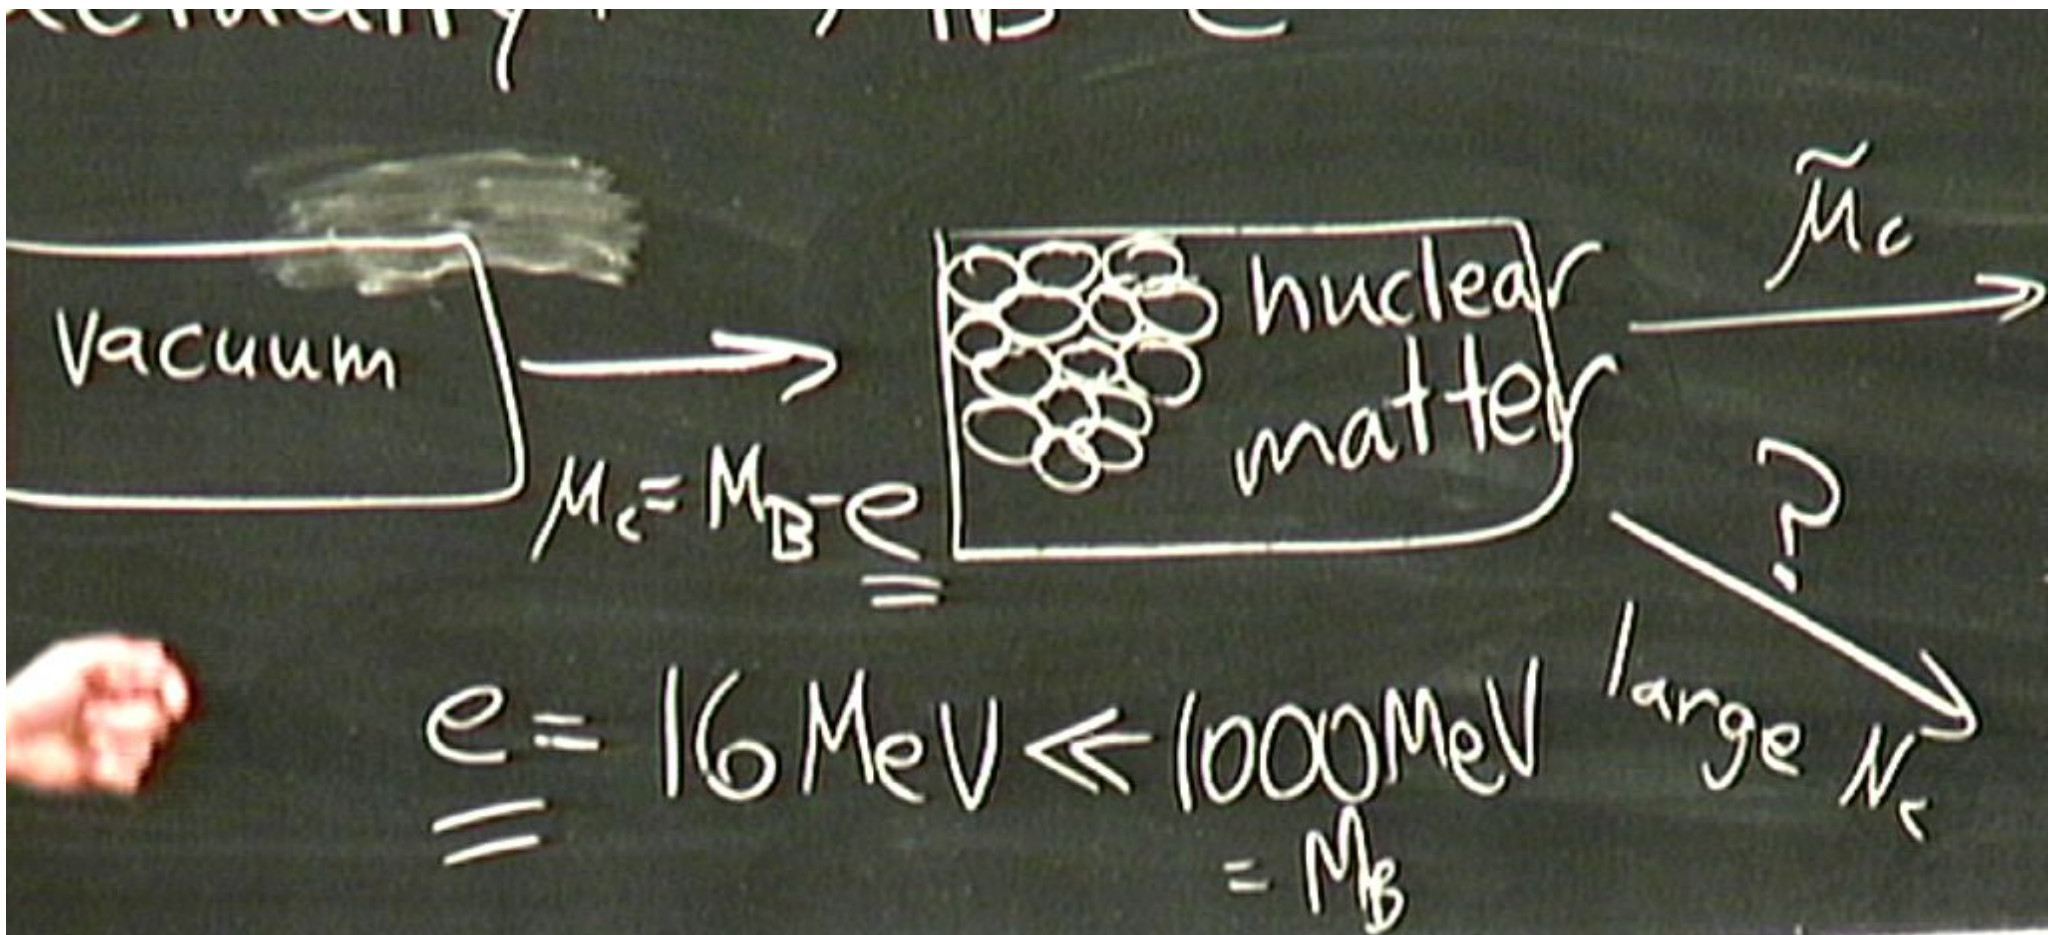 vacuum
μc = MB - e
nuclear
matter
μ̃c
?
large Nc
e = 16 MeV ≪ 1000 MeV
= MB